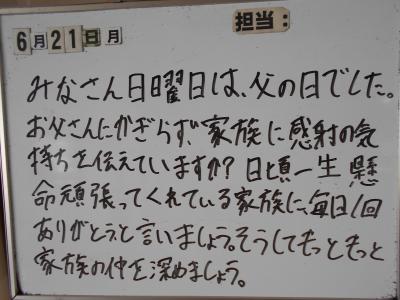 担当：
6月21日月
みなさん日曜日は、父の日でした。
お父さんにかぎらず、家族に感射の気
持ちを伝えていますか？日頃一生懸
命頑張ってくれている家族に、毎日1回
ありがとうと言いましょう。そうしてもっともっと
家族の仲を深めましょう。